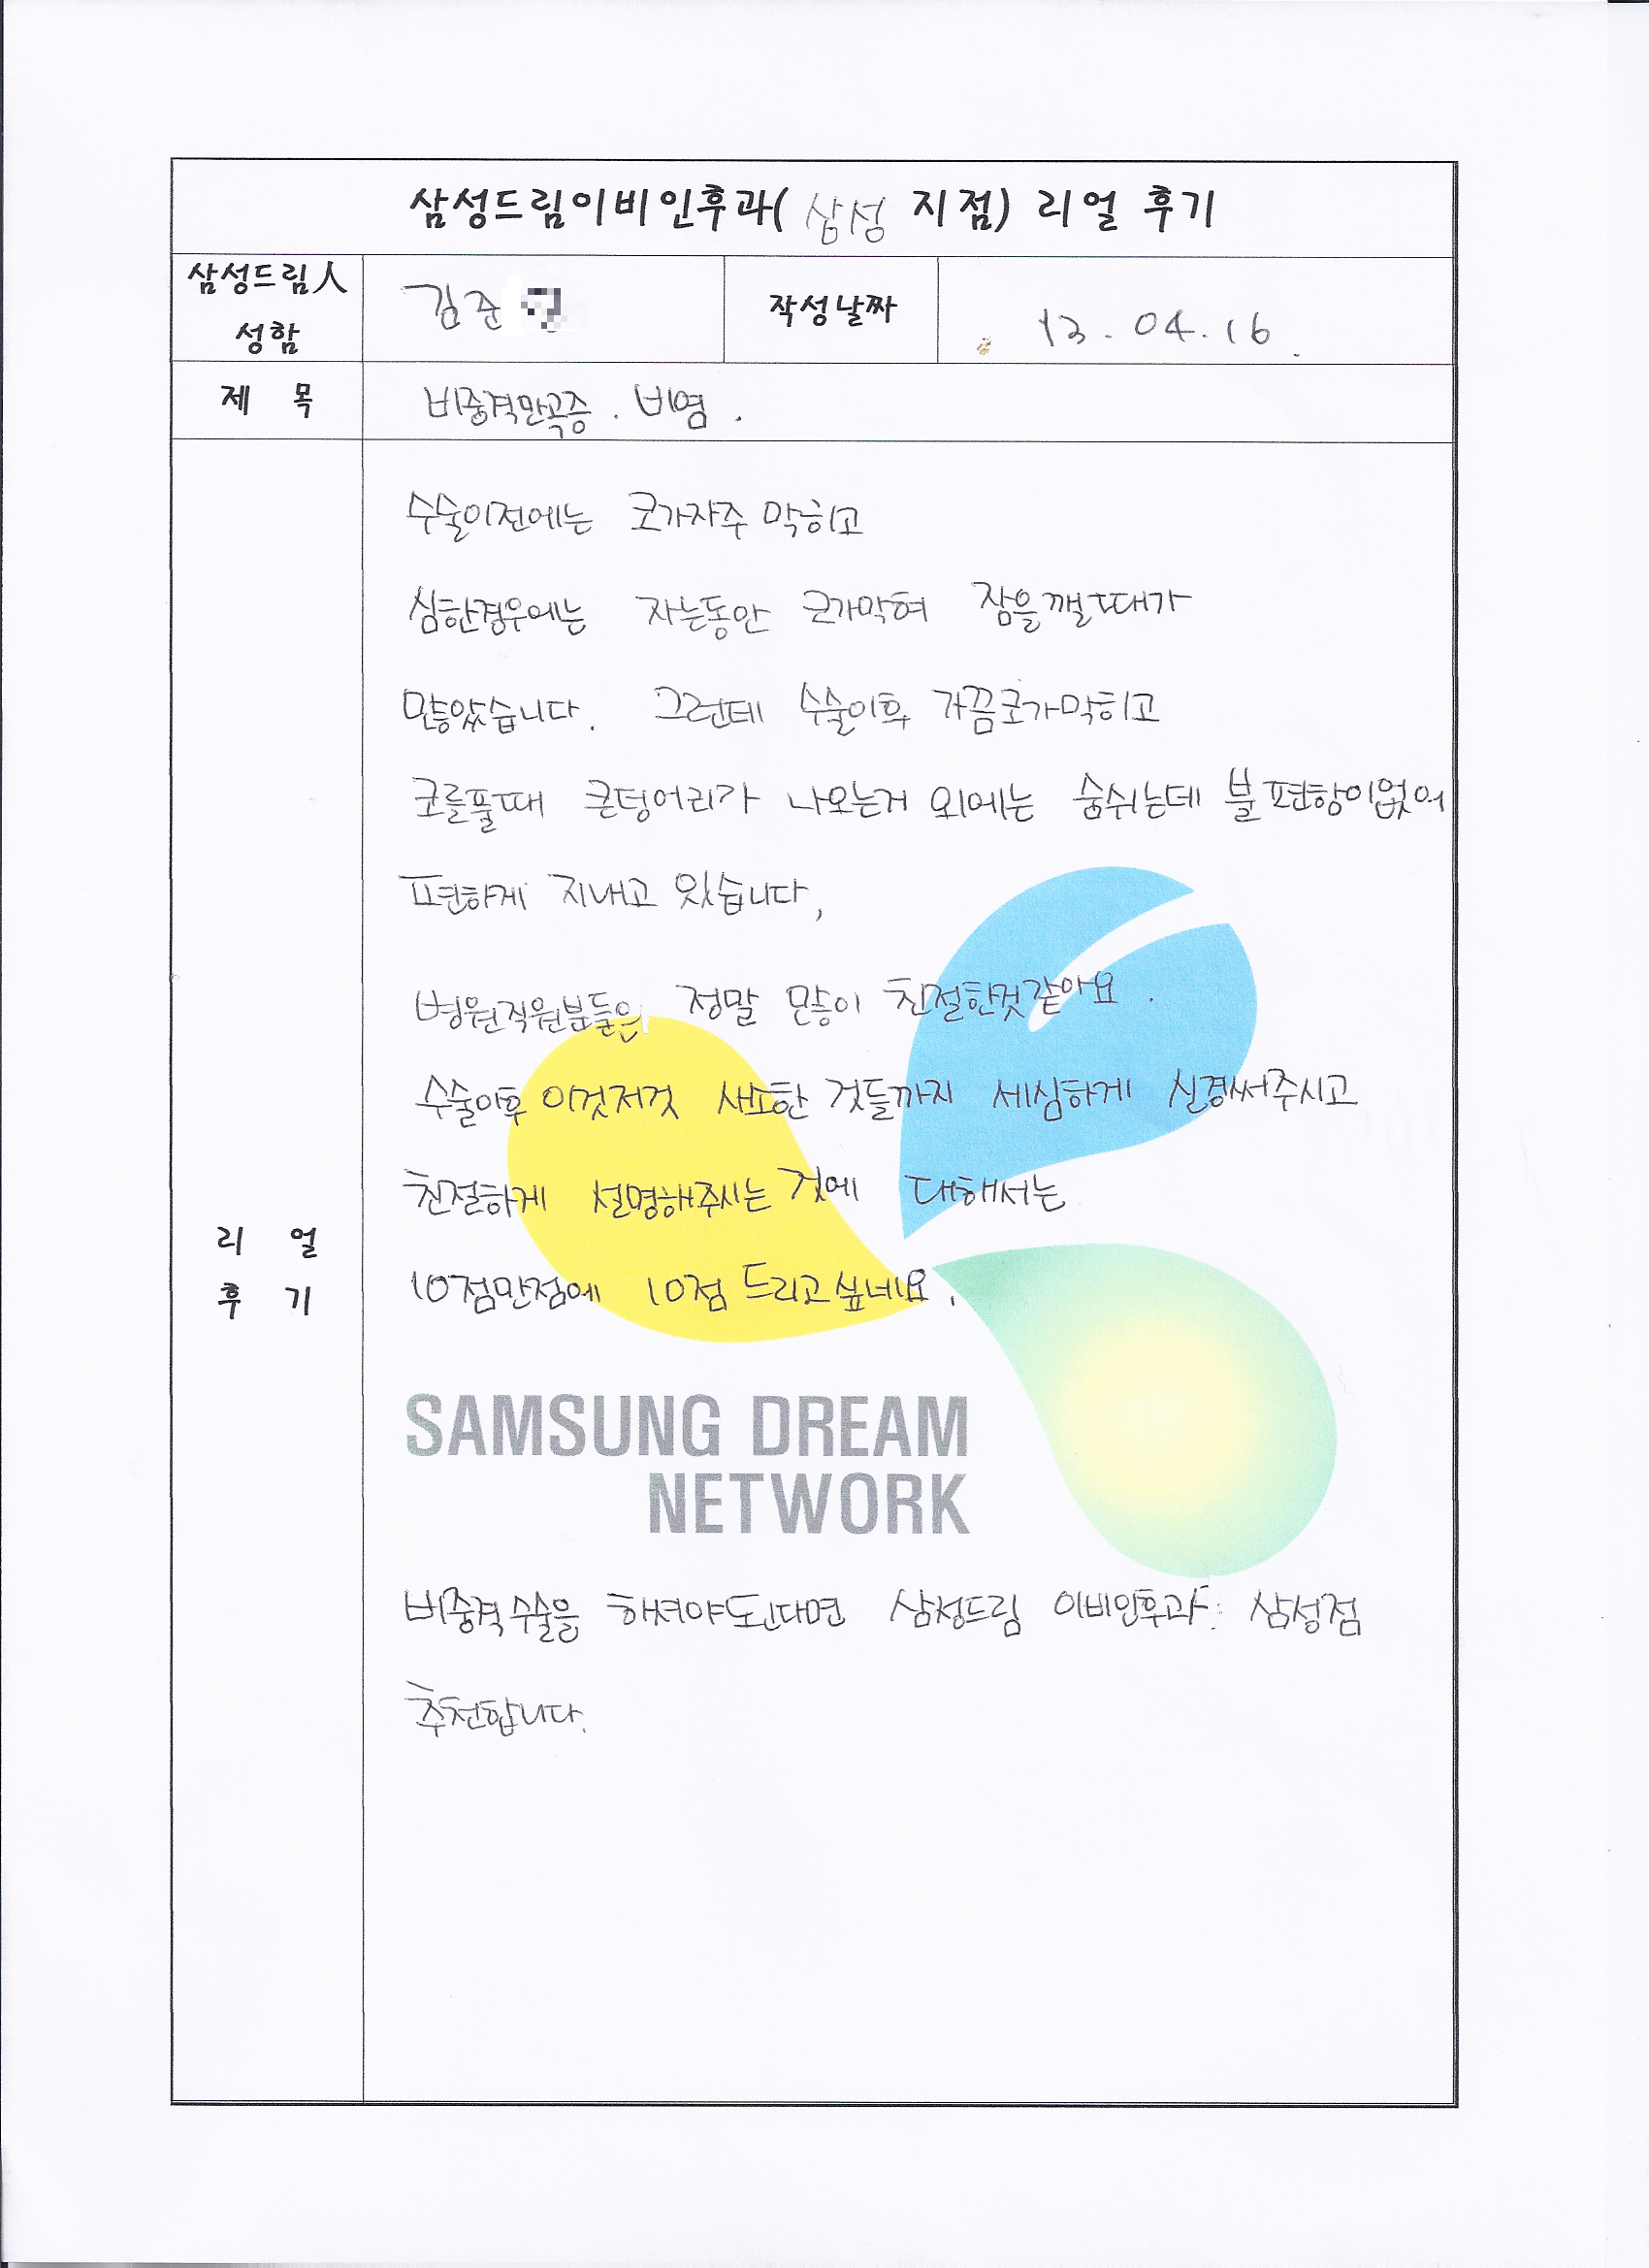 삼성드림이비인후과( 삼성 지점) 리얼 후기
삼성드림人
성함
김준
작성날짜
13.04.16.
제 목
비중격만곡증. 비염.
수술이전에는 코가자주 막히고
심한경우에는 자는동안 코가막혀 잠을깰때가
많았습니다. 그런데 수술이후 가끔코가막히고
코를풀때 큰덩어리가 나오는거 외에는 숨쉬는데 불편함이없어
편하게 지내고 있습니다,
병원직원분들은 정말 많이 친절한것같아요.
수술이후 이것저것 새소한 것들까지 세심하게 신경써주시고
친절하게 설명해주시는 것에 대해서는
10점만점에 10점 드리고싶네요.
리 얼
후 기
SAMSUNG DREAM
NETWORK
비중격수술을 하셔야된다면 삼성드림 이비인후과 삼성점
추천합니다.